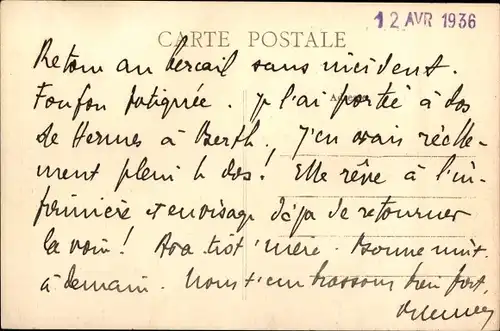 12 AVR 1936
CARTE POSTALE
Retour au bercail sans incident.
Foufou fatiguée. Je l'ai portée à dos
de Hermes à Berth. J'en avais réelle-
ment plein le dos! Elle rêve à l'in-
firmière et envisage déjà de retourner
la voir! Bonne nuit.
à demain. Nous t'embrassons bien fort.